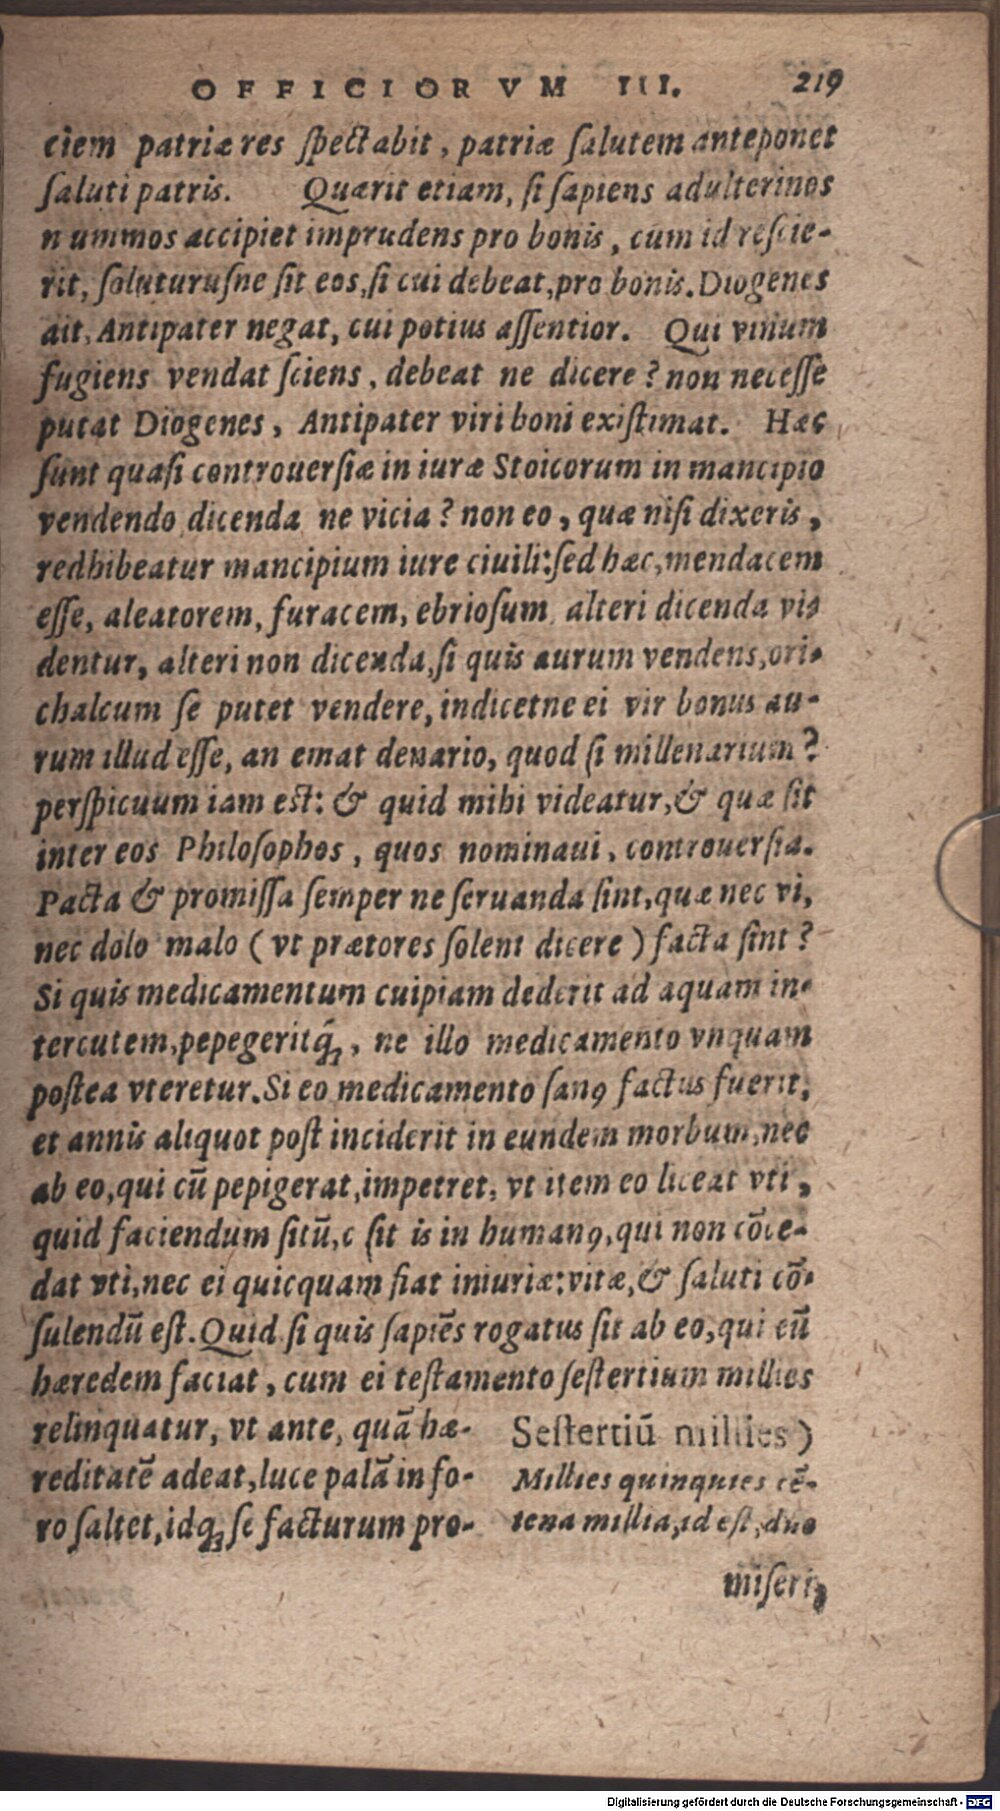 OFFICIORVM III. 219
ciem patriæ res ſpectabit, patriæ ſalutem anteponet
ſaluti patris. Quærit etiam, ſi ſapiens adulterinos
n ummos accipiet imprudens pro bonis, cum id reſcie-
rit, ſoluturuſne ſit eos, ſi cui debeat, pro bonis. Diogenes
ait, Antipater negat, cui potius aſſentior. Qui vinum
fugiens vendat ſciens, debeat ne dicere? non neceſſe
putat Diogenes, Antipater viri boni exiſtimat. Hæc
ſunt quaſi controuerſiæ in iuræ Stoicorum in mancipio
vendendo dicenda ne vicia? non eo, quæ niſi dixeris,
redhibeatur mancipium iure ciuili: ſed hæc, mendacem
eſſe, aleatorem, furacem, ebrioſum alteri dicenda vi-
dentur, alteri non dicenda, ſi quis aurum vendens, ori-
chalcum ſe putet vendere, indicetne ei vir bonus au-
rum illud eſſe, an emat denario, quod ſi millenarium?
perſpicuum iam est: & quid mihi videatur, & quæ ſit
inter eos Philoſophos, quos nominaui, controuerſia.
Pacta & promiſſa ſemper ne ſeruanda ſint, quæ nec vi,
nec dolo malo (vt prætores ſolent dicere) facta ſint?
Si quis medicamentum cuipiam dederit ad aquam in-
tercutem, pepegeritq́ꝫ, ne illo medicamento vnquam
poſtea vteretur. Si eo medicamento ſanꝰ factus fuerit,
et annis aliquot poſt inciderit in eundem morbum, nec
ab eo, qui cū pepigerat, impetret, vt item eo liceat vti,
quid faciendum ſitū, c ſit is in humanꝰ, qui non cōce-
dat vti, nec ei quicquam fiat iniuriæ: vitæ, & ſaluti cō-
ſulendū eſt. Quid ſi quis ſapiēs rogatus ſit ab eo, qui eū
hæredem faciat, cum ei teſtamento ſeſtertium millies
relinquatur, vt ante, quā hæ-
reditatē adeat, luce palā in fo-
ro ſaltet, idqꝫ ſe facturum pro-
Seſtertiū millies)
Millies quinquies cē-
tena millia, id eſt, duo
miſeri,
Digitalisierung gefördert durch die Deutsche Forschungsgemeinschaft - DFG